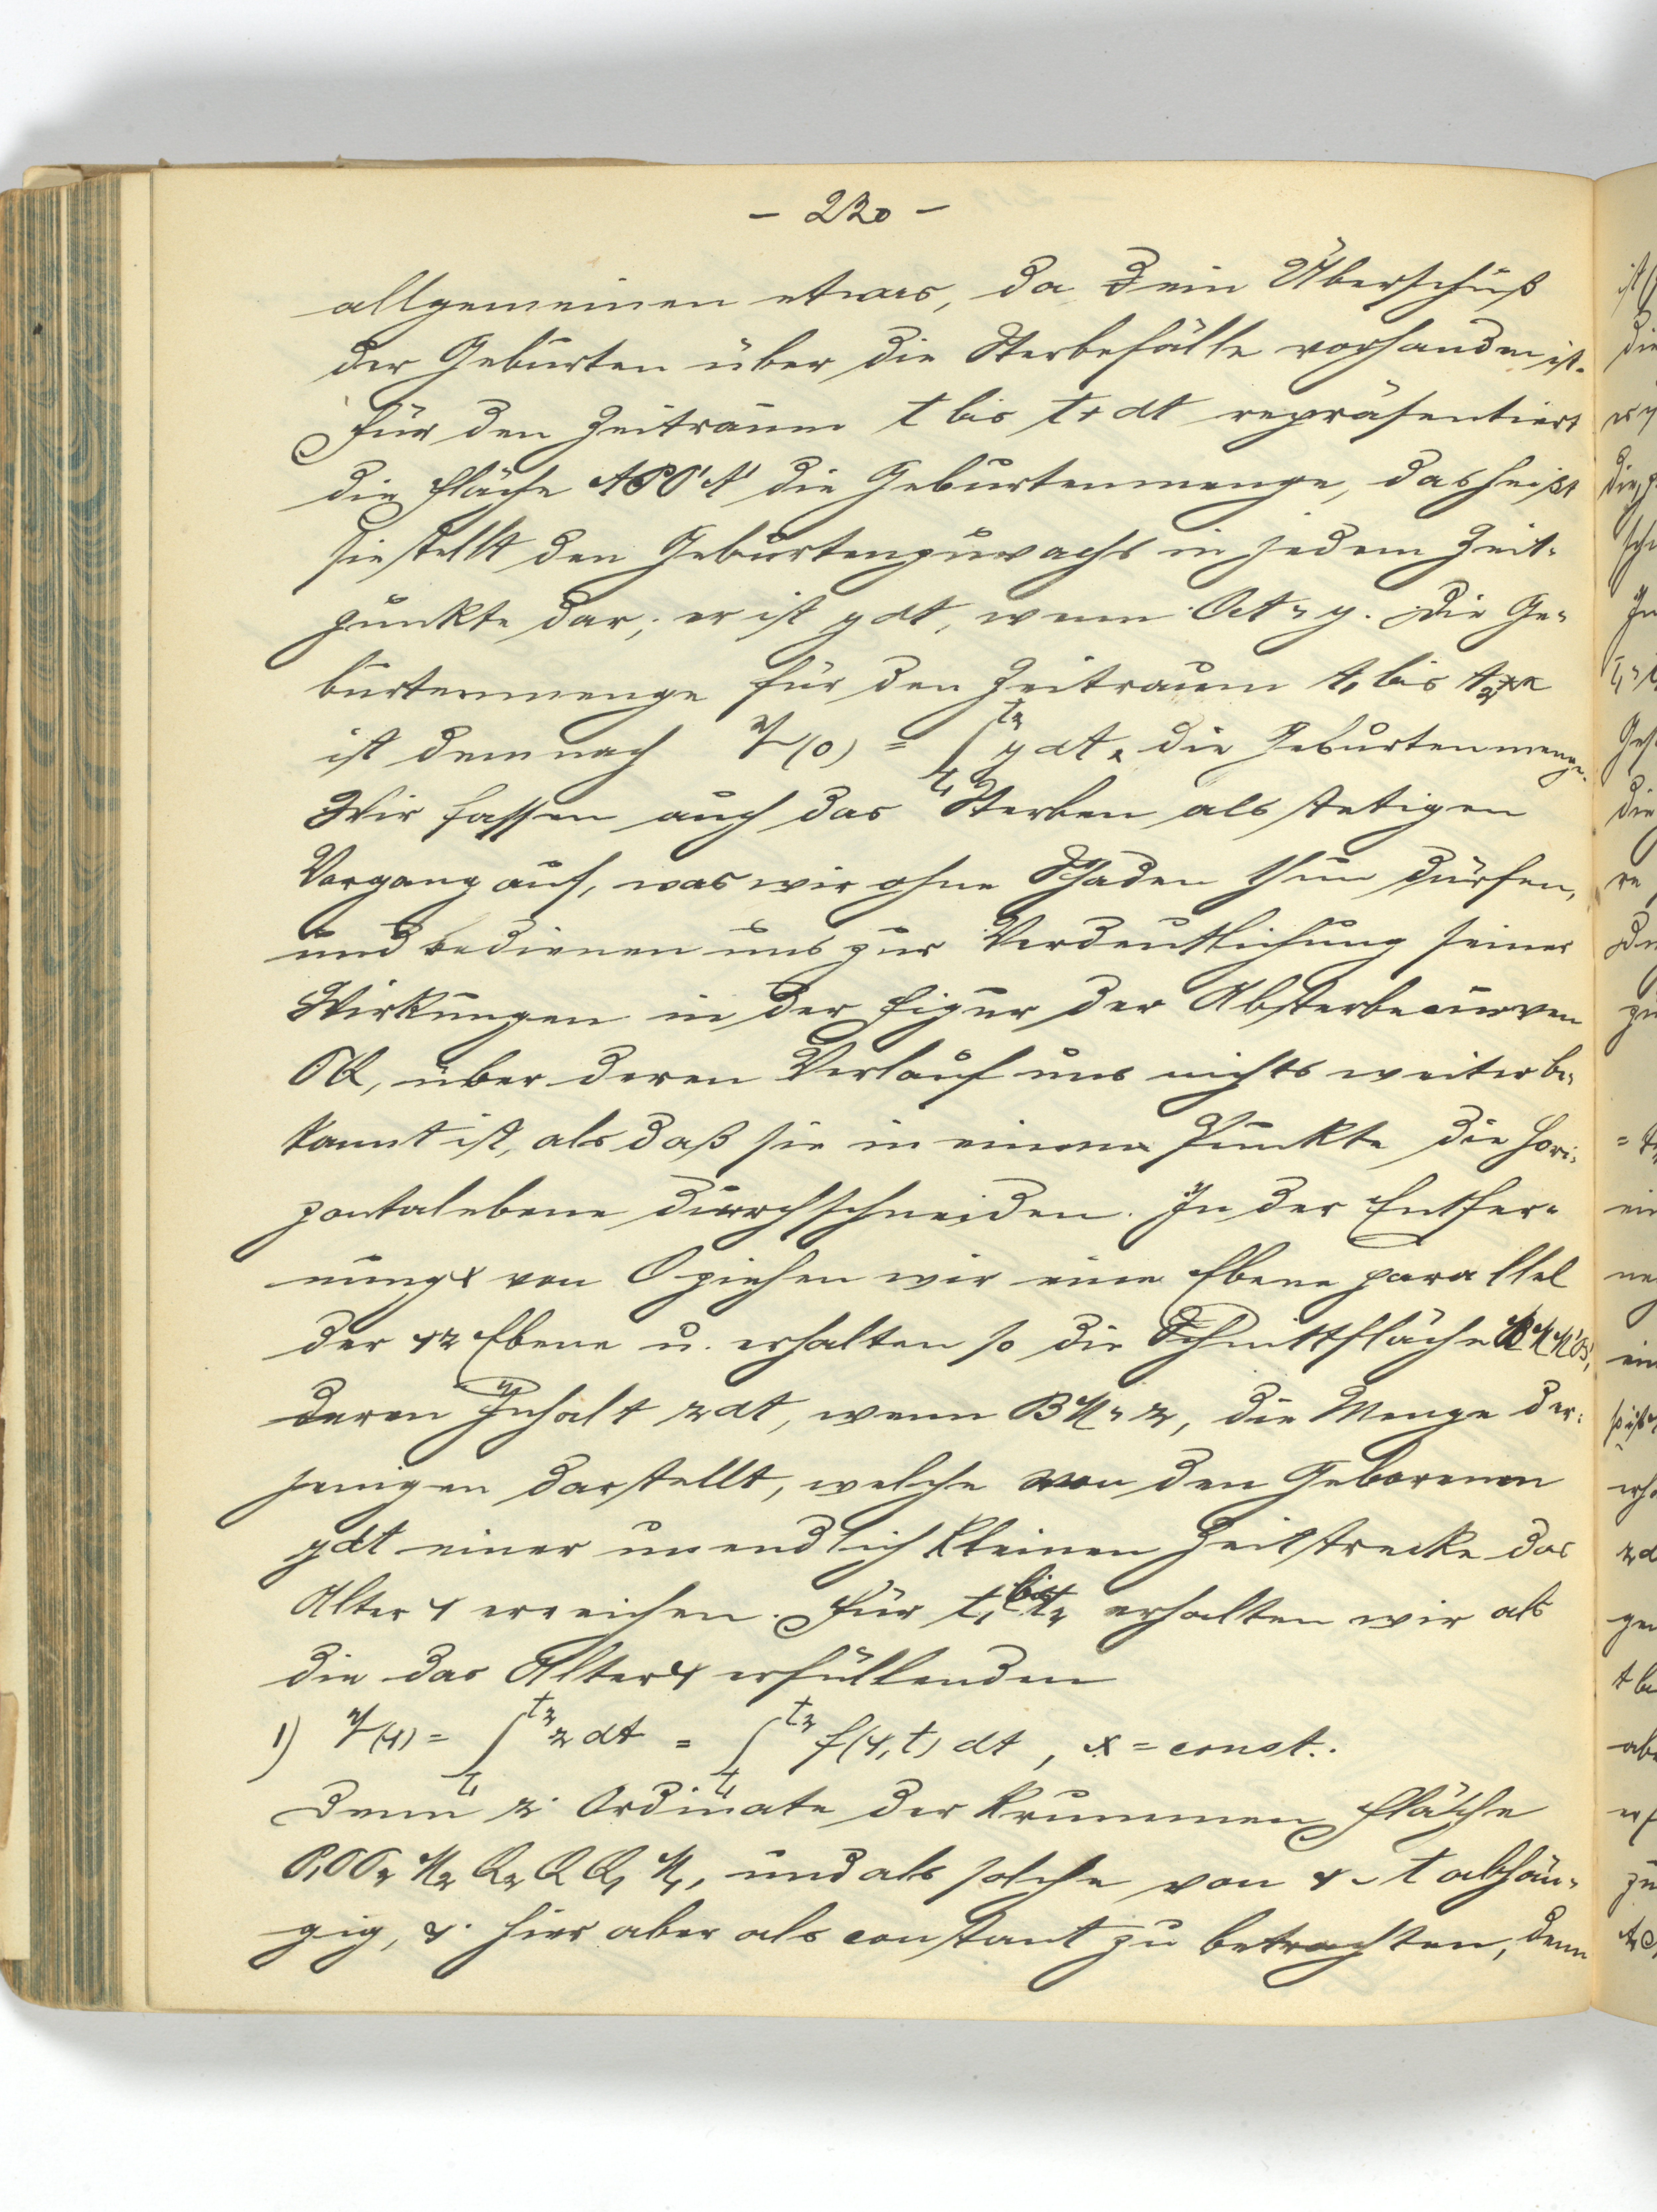 - 220 -
allgemeinen etwas, da ein Überschuß
der Geburten über die Sterbefälle vorhanden ist.
Für den Zeitraum t bis t+dt repräsentiert
die Fläche APP'A' die Geburtenmenge, das heißt
sie stellt den Geburtenzuwachs in jedem Zeit-
punkte dar; er ist y dt, wenn = y. Die Ge-
burtenmenge für den Zeitraum t₁ bis t₂
ist demnach (0) = ∫ t₁ t₂ y dt, die Geburtenmenge.
Wir fassen auch das Sterben als stetigen
Vorgang auf, was wir ohne Schaden thun dürfen,
und bedienen uns zur Verdeutlichung seiner
Wirkungen in der Figur der Absterbecurven
über deren Verlauf uns nichts weiter be-
kannt ist, als daß sie in einem Punkte die Hori-
zontalebene durchschneiden. In der Entfer-
nung x von O ziehen wir eine Ebene parallel
der Ebene u. erhalten so die Schnittfläche
deren Inhalt z dt, wenn = z, die Menge der-
jenigen darstellt, welche von den Geborenen
y dt einer unendlich kleinen Zeitstrecke das
Alter x erreichen. Für t₁ bis t₂ erhalten wir als
die das Alter x erfüllenden
1) (x) = ∫ t₁ t₂ z dt = ∫ t₁ t₂ f(x, t) dt, x = const.
Denn z Ordinate der krummen Fläche
und als solche von x u. t abhän-
gig, x hier aber als constant zu betrachten, denn